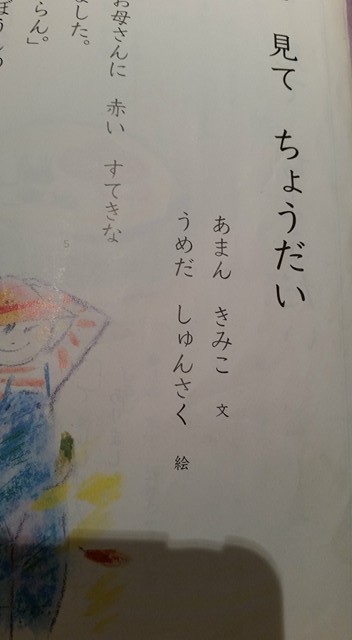 見て ちょうだい
あまん きみこ 文
うめだ しゅんさく 絵
お母さんに 赤い すてきな
ました。
らん。」
5